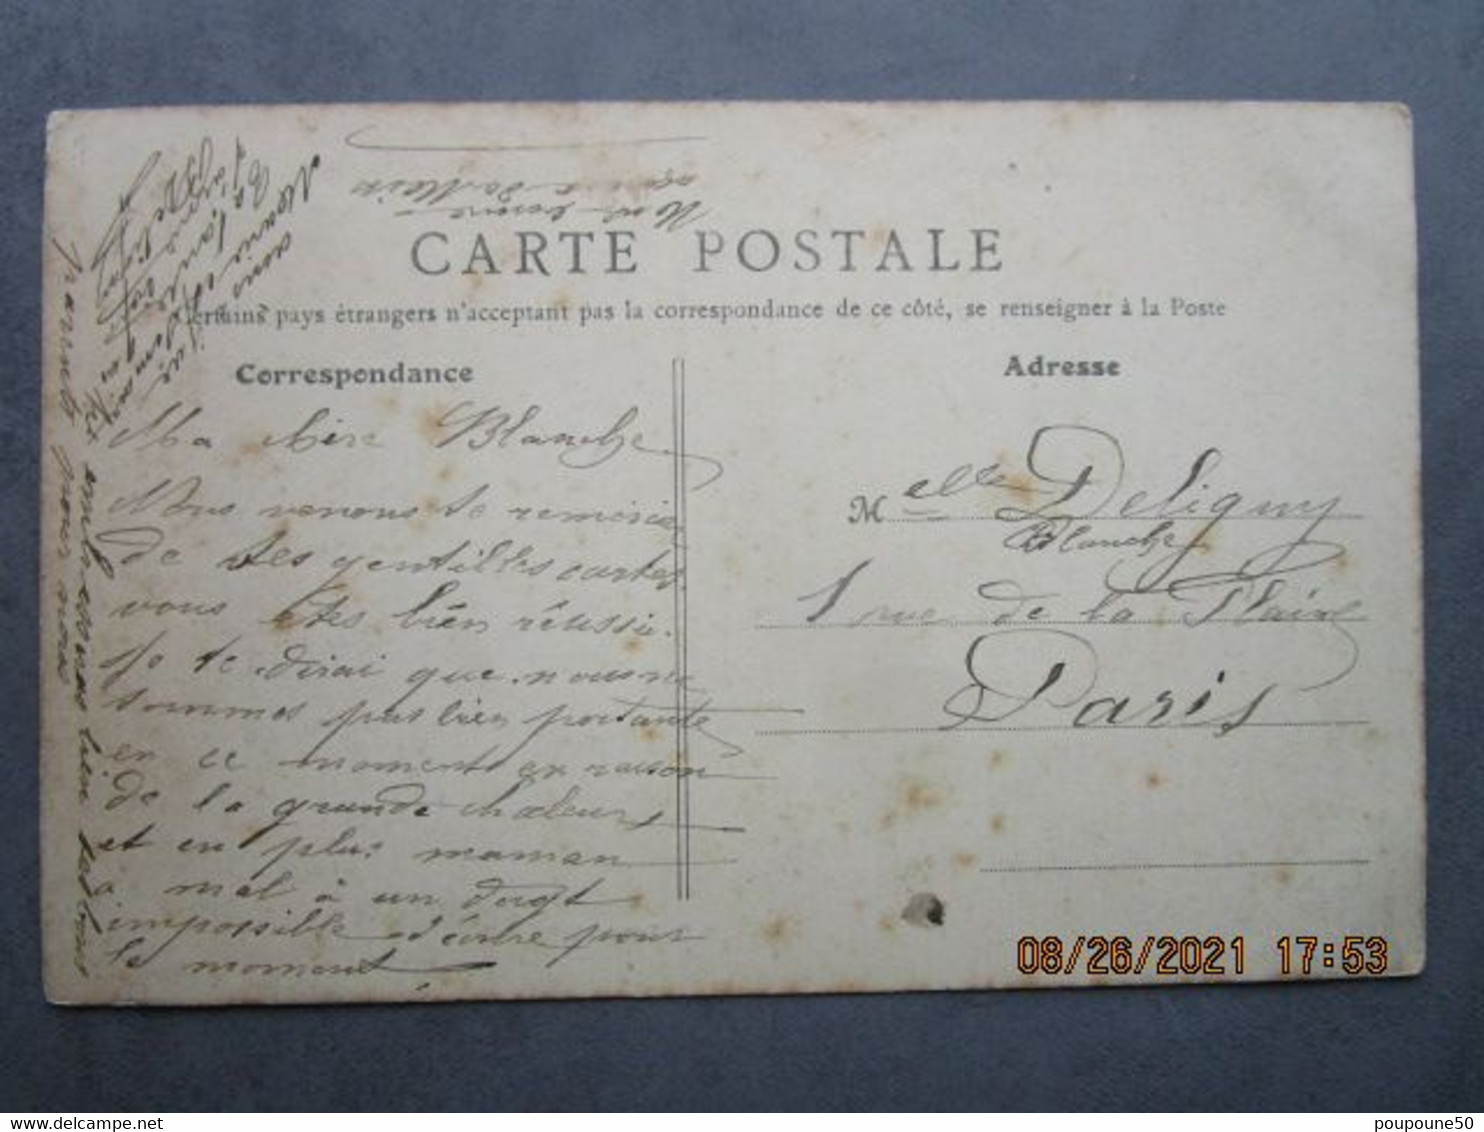 CARTE POSTALE
Certains pays étrangers n'acceptant pas la correspondance de ce côté, se renseigner à la Poste
Correspondance
Ma chère Blanche
Nous venons te remercier
de tes gentilles cartes
vous êtes bien réussie.
Je te dirai que nous ne
sommes pas bien portante
en ce moment en raison
de la grande chaleurs
et en plus maman
a mal à un doigt
impossible d'écrire pour
le moment
embrasses bien tes bons
parents pour nous
Adresse
Melle Deligny
Blanche
1 rue de la Plaine
Paris
08/26/2021 17:53
poupoune50